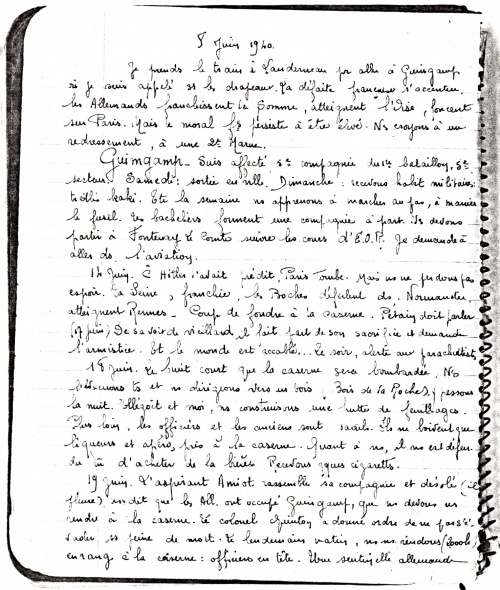 8 Juin 1940.
Je prends le train à Landerneau pr aller à Guingamp
où je suis appelé ss les drapeaux. La défaite française s'accentue.
les Allemands franchissent la Somme, atteignent l'Oise, foncent
sur Paris. Mais le moral fs persiste à être élevé. Ns croyons à un
redressement, à une 2e Marne.
Guingamp. Suis affecté 5e compagnie du 1er bataillon, 5e
secteur. Samedi : sortie en ville. Dimanche : recevons habit militaire :
kaki. Ete la semaine ns apprenons à marcher au pas, à manier
le fusil. Les bacheliers forment une compagnie à part. Ils devons
partir à Fontenay le Comte suivre les cours d'E.O.R. Je demande à
aller ds l'aviation.
14 Juin. Hitler l'avait prédit, Paris Tombe. Mais ns ne perdons pas
espoir. La Seine, franchie, les Boches déferlent ds Normandie,
atteignent Rennes - Coup de foudre à la Caserne. Pétain doit parler
(17 juin) De sa voix de vieillard il fait part de son sacrifice et demande
l'armistice. Et le monde est accablé... Le soir, alerte aux parachutistes
18 Juin. Le bruit court que la caserne sera bombardée. Ns
l'évacuons ts et ns dirigeons vers un bois (Bois de la Roche), passons
la nuit. et moi, ns construisons une hutte de feuillages.
Plus loin, les officiers et les anciens sont saouls. Ils ne boivent que
liqueurs et apéro, pris à la caserne. Quant à ns, il ns est défen-
du d'acheter de la bière. Recevons qques cigarettes.
19 Juin. L'aspirant Amiot rassemble sa compagnie et désolé (il
pleure), ns dit que les All. ont occupé Guingamp, que ns devons ns
rendre à la caserne. Le colonel a donné ordre de ne pas s'é-
vader, ss peine de mort. Le lendemain matin, ns ns rendons
en rang à la caserne : officiers en tête. Une sentinelle allemande